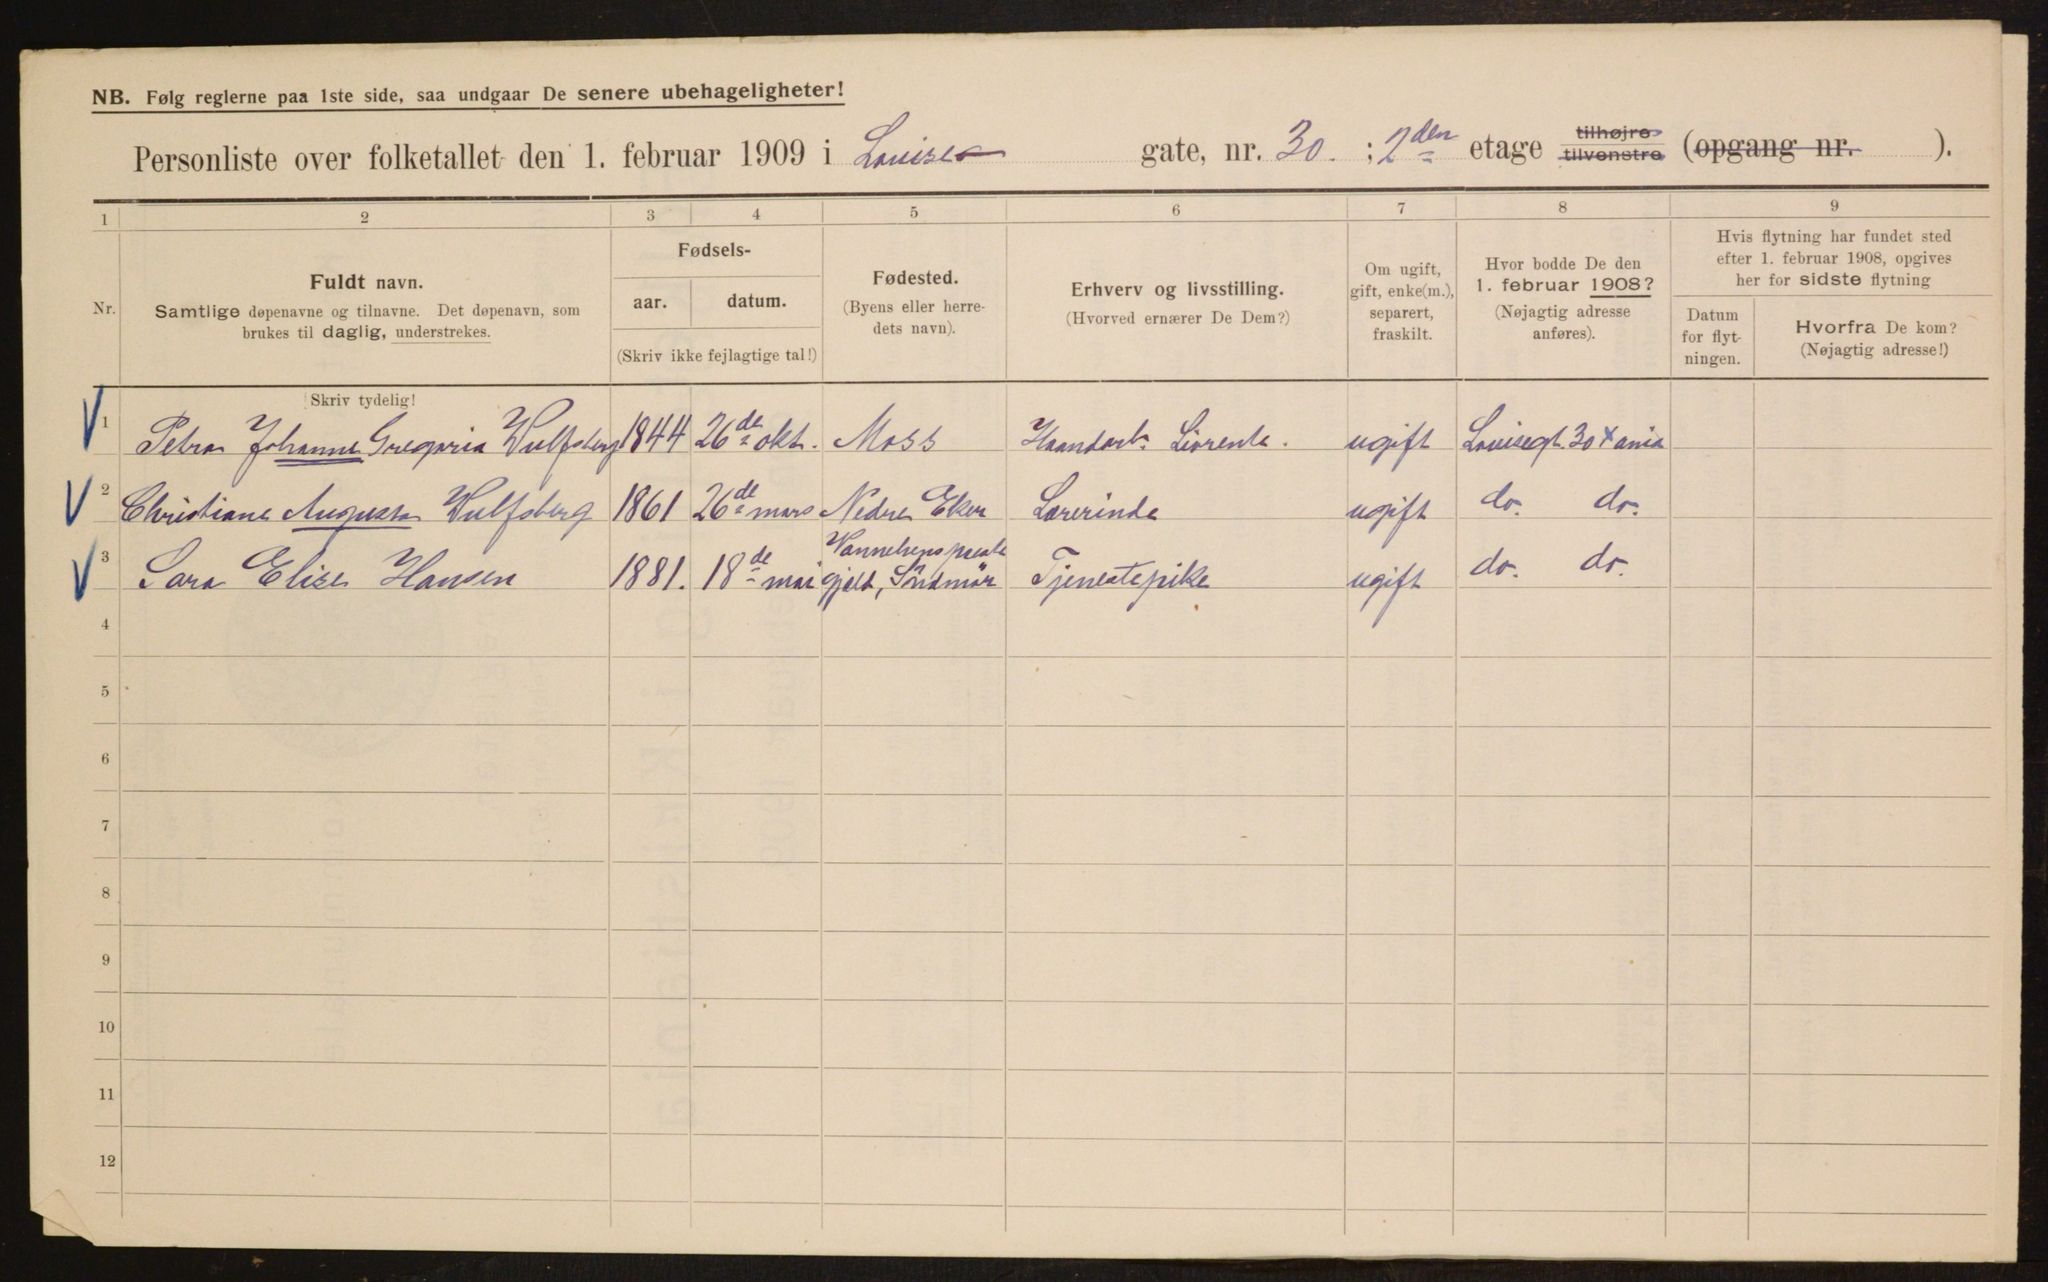 NB. Følg reglerne paa 1ste side, saa undgaar De senere ubehageligheter!
Personliste over folketallet den 1. februar 1909 i Louises gate, nr. 30. ; 2den etage tilhøjre tilvenstre (opgang nr. ).
1 2 3 4 5 6 7 8 9
Nr.
Fuldt navn.
Samtlige døpenavne og tilnavne. Det døpenavn, som
brukes til daglig, understrekes.
Fødsels-
aar. datum.
(Skriv ikke fejlagtige tal!)
Fødested.
(Byens eller herre-
dets navn).
Erhverv og livsstilling.
(Hvorved ernærer De Dem?)
Om ugift,
gift, enke(m.),
separert,
fraskilt.
Hvor bodde De den
1. februar 1908?
(Nøjagtig adresse
anføres).
Hvis flytning har fundet sted
efter 1. februar 1908, opgives
her for sidste flytning
Datum
for flyt-
ningen.
Hvorfra De kom?
(Nøjagtig adresse!)
Skriv tydelig!
1 Petra Johanne Gregoria Wulfsberg 1844 26de okt. Moss Haandarb. Livrente. ugift Louisegt. 30 Xania
2 Christiane Augusta Wulfsberg 1861 26de mars Nedre Eker Lærerinde ugift do. do.
3 Sara Elise Hansen 1881. 18de mai gjeld, Söndmör Tjenestepike ugift do. do.
4
5
6
7
8
9
10
11
12